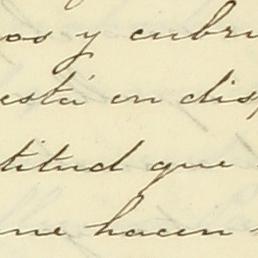 os y cubri
está en disp
titud que
me hacen